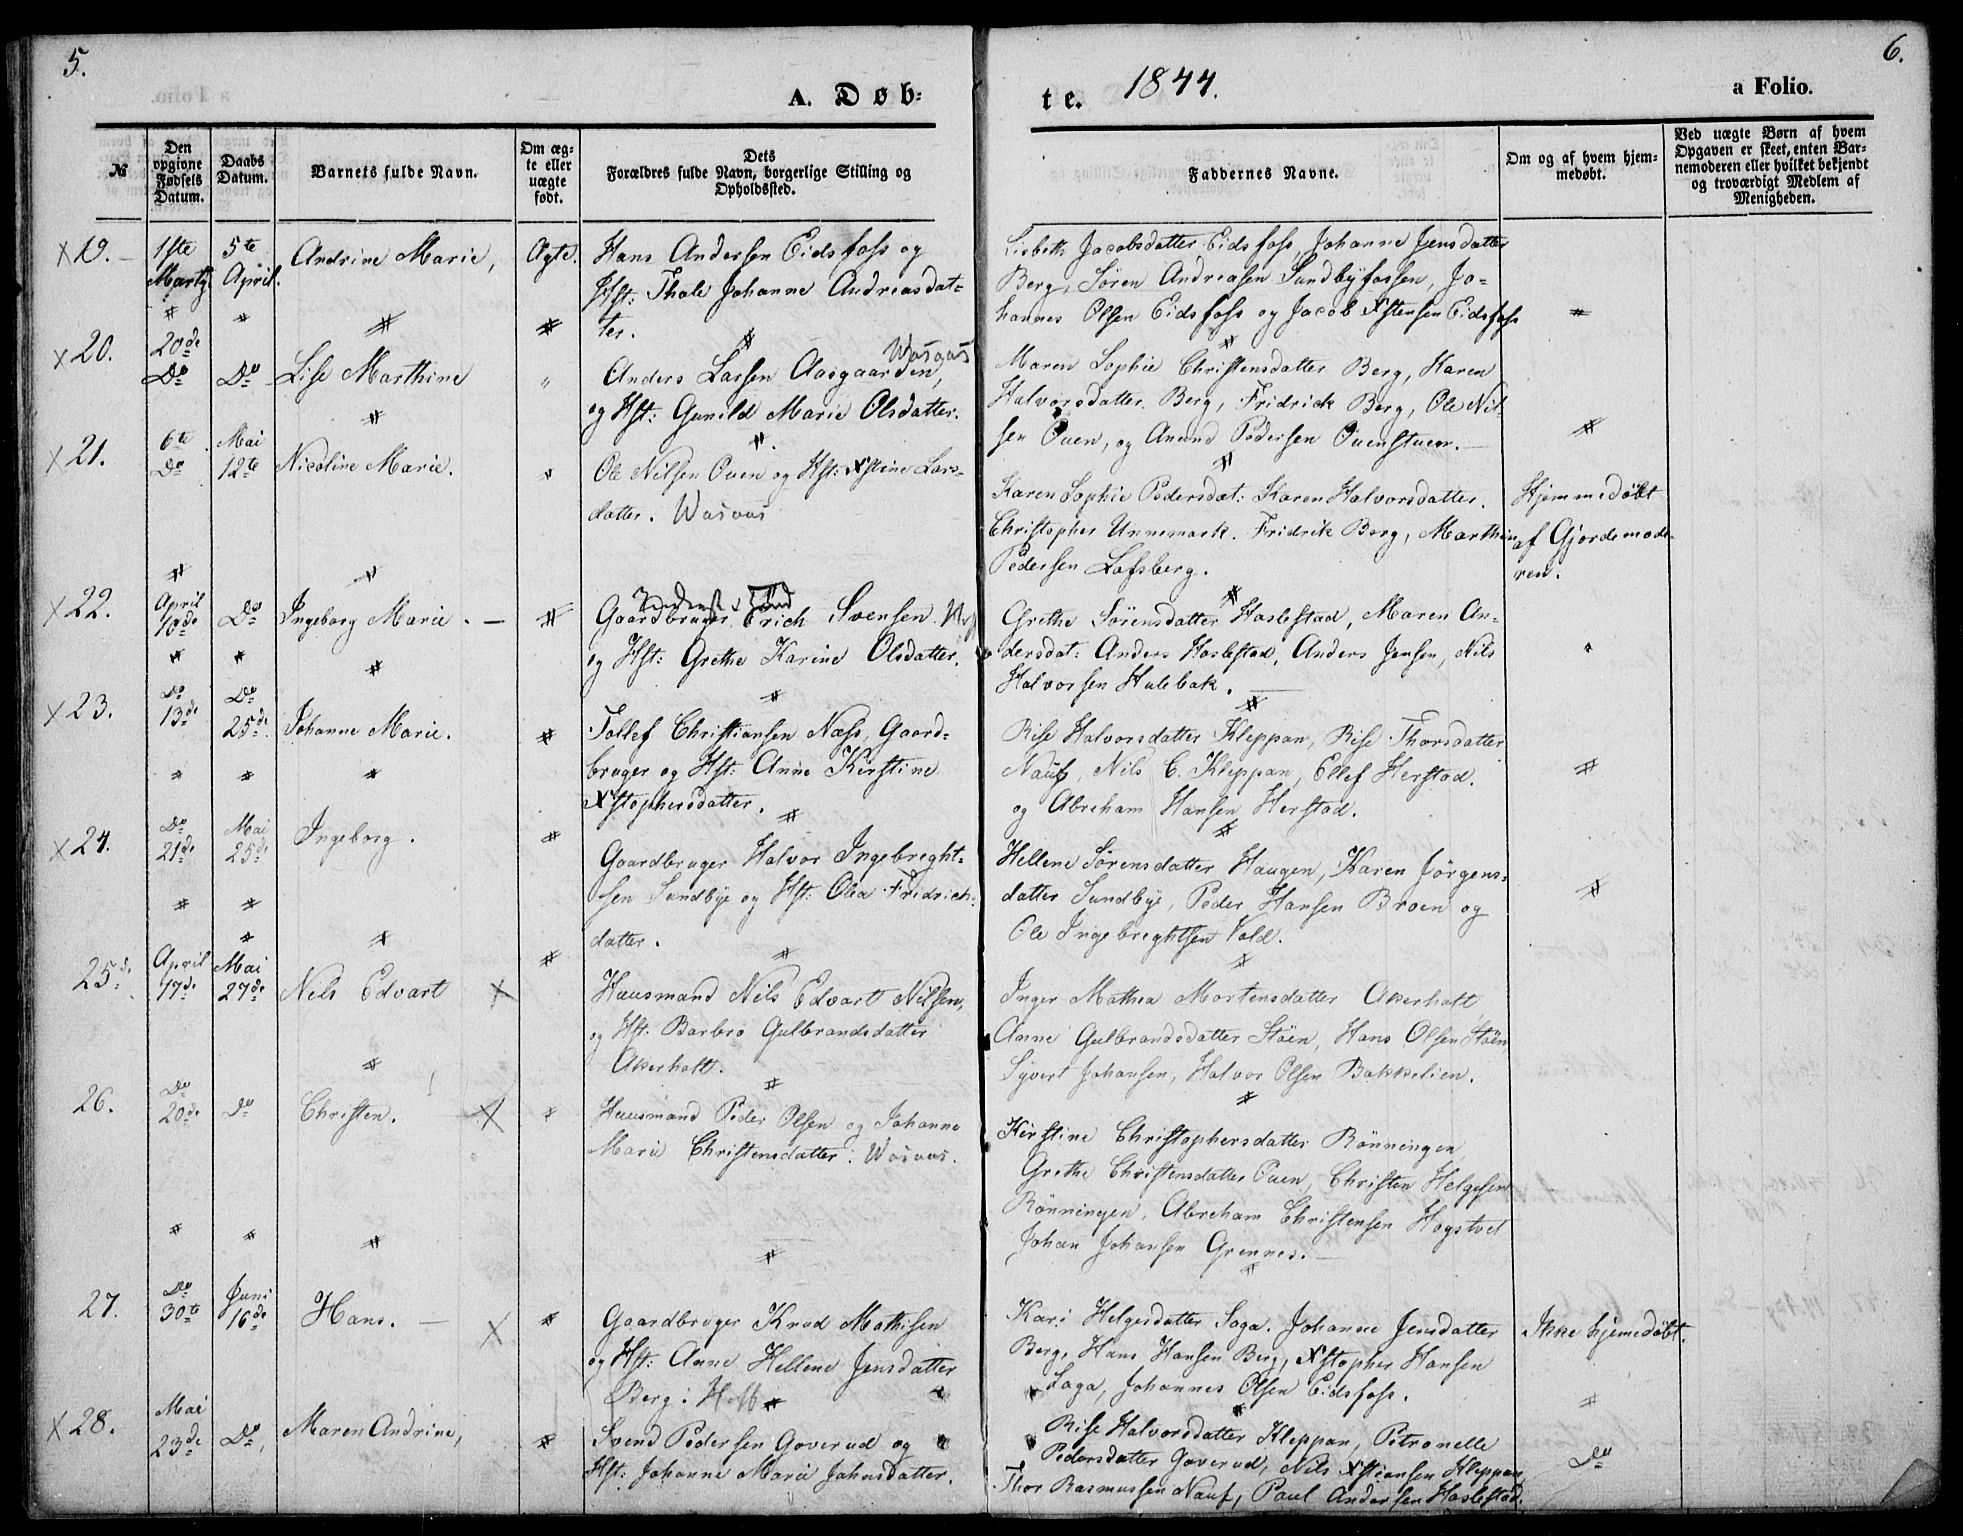 5.
6.
A. Døb-
te. 1844.
a Folio.
№
Den opgivne Fødsels Datum.
Daabs Datum.
Barnets fulde Navn.
Om ægte eller uægte født.
Dets Forældres fulde Navn, borgerlige Stilling og Opholdssted.
Faddernes Navne.
Om og af hvem hjemmedøbt.
Ved uægte Børn af hvem Opgaven er skeet, enten Barnemoderen eller hvilket bekjendt og troværdigt Medlem af Menigheden.
X 19. 1ste Marty. 5te April. Andrine Marie, Ægte.
Hans Andersen Eidsfoss og
Hst: Thale Johanne Andreasdat-
ter.
Lisbeth Jacobsdatter Eidsfoss, Johanne Jensdatter
Berg, Søren Andreasen Sundbyfossen, Jo-
hannes Olsen Eidsfoss og Jacob Xstensen Eidsfoss
X 20. 20de Do Do Lise Marthine "
Anders Larsen Aasgaarden,
og Hst: Gunild Marie Olsdatter.
Maren Sophie Christensdatter Berg, Karen
Halvorsdatter Berg, Fridrick Berg, Ole Nil
sen Ouen, og Anund Pedersen Ouenstuen.
X 21. 6te Do Mai 12te Nicoline Marie. "
Ole Nilsen Ouen og Hst: Xstine Lars-
datter. Wasaas
Karen Sophie Pedersdat: Karen Halvorsdatter.
Christopher Unnemark. Fridrik Berg, Marthin
Pedersen Lofsberg.
Hjemmedøbt
af Gjordemode-
ren.
X 22. April 10de Do Ingeborg Marie. — "
Gaardbruger Erich Svensen
og Hst: Grethe Karine Olsdatter.
Grethe Sørensdatter Haslestad, Maren An-
dersdat: Anders Haslestad, Anders Jensen, Nils
Halvorsen Hulebak.
X 23. Do 13de Do 25de Johanne Marie. "
Tollef Christiansen Næss, Gaard-
bruger og Hst: Anne Kirstine
Xstophersdatter.
Rise Halvorsdatter Kleppan, Rise Thorsdatter
Nauf, Nils C. Kleppan, Ellef Herstad.
og Abreham Hansen Herstad.
X 24. Do 21de Mai 25de Ingeborg. "
Gaardbruger Halvor Ingebreght-
sen Sundbye og Hst: Olea Fridrich-
datter.
Hellene Sørensdatter Haugen, Karen Jörgens-
datter Sundbye, Peder Hansen Broen og
Ole Ingebreghtsen Vold.
25de April 17de Mai 27de Nils Edvart X "
Huusmand Nils Edvart Nilsen,
og Hst: Barbro Gulbrandsdatter
Akerholt.
Inger Mathea Mortensdatter Akerholt
Anne Gulbrandsdatter Stöen, Hans Olsen Stöen
Syvert Johansen, Halvor Olsen Bakkelien.
26. Do 20de Do Christen. X "
Huusmand Peder Olsen og Johanne
Marie Christensdatter. Wasaas.
Kirstine Christophersdatter Rönningen
Grethe Christensdatter Ouen, Christen Helgesen
Rönningen, Abreham Christensen Hogstvet
Johan Johansen Grennes.
27. Do 30te Juni 16de Hans. — X "
Gaardbruger Knud Mathisen
og Hst: Anne Hellene Jensdatter
Berg i Hoff
Kari Helgesdatter Saga. Johanne Jensdatter
Berg, Hans Hansen Berg, Xstopher Hansen
Saga, Johannes Olsen Eidsfoss.
Ikke hjemedøbt.
X 28. Mai 23de Do, Maren Andrine, "
Svend Pedersen Goverud og
Hst: Johanne Marie Johnsdatter.
Rise Halvorsdatter Kleppan, Petronelle
Pedersdatter Goverud, Nils Xstiansen Kleppan,
Thor Rasmussen Nauf, Paul Andersen Haslestad.
Do